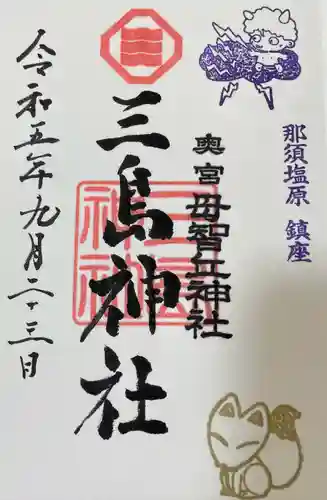 那須塩原 鎮座
奥宮 母智丘神社
三島神社
三島神社
令和五年九月二十三日